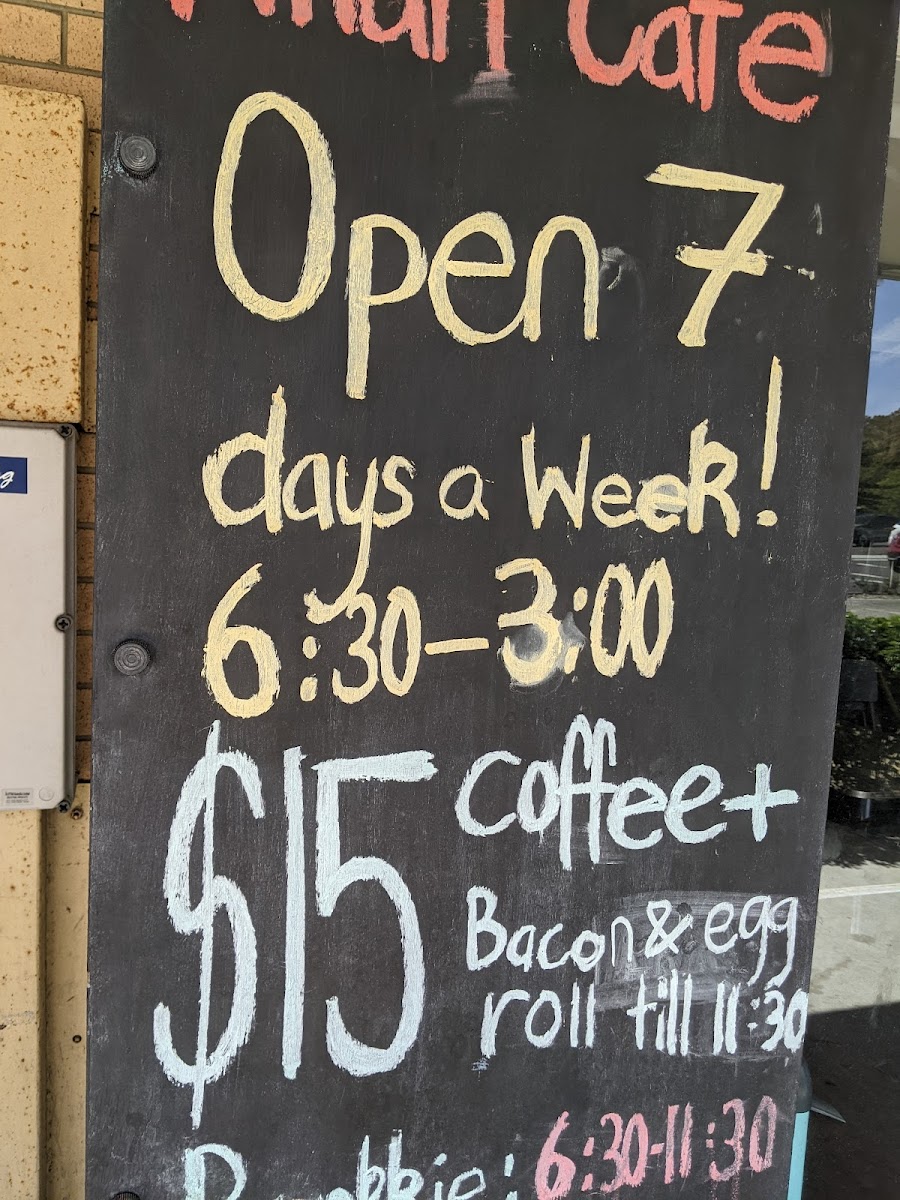 Cafe
Open 7
days a Week!
6:30-3:00
$15 coffee+
Bacon & egg
roll till 11:30
6:30-11:30